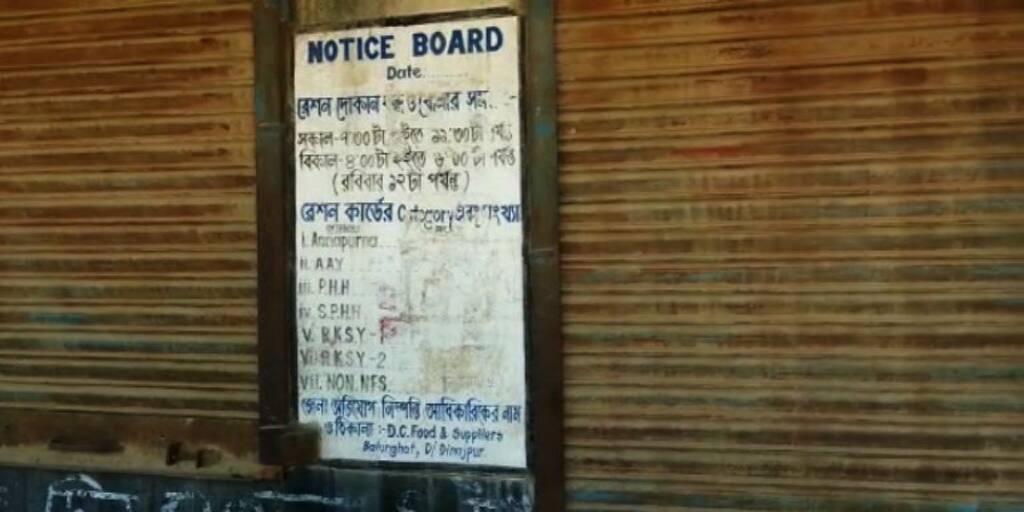 NOTICE BOARD
Date........
রেশন দোকান
সকাল-৭:০০টা হইতে ১১:৩০টা পর্যন্ত
বিকাল-৪:০০টা হইতে ৬:০০টা পর্যন্ত
(রবিবার ১২টা পর্যন্ত)
রেশন কার্ডের Category এবং সংখ্যা
i. Annapurna
ii. AAY
iii. P.H.H
iv. S.P.H.H.
V. R.K.S.Y-1
Vi. R.K.S.Y-2
Vii. NON.NFS.
জেলা অভিযোগ নিষ্পত্তি আধিকারিকের নাম
ও ঠিকানা :-D.C.Food & Suppliers
Balurghat, D/Dinajpur.